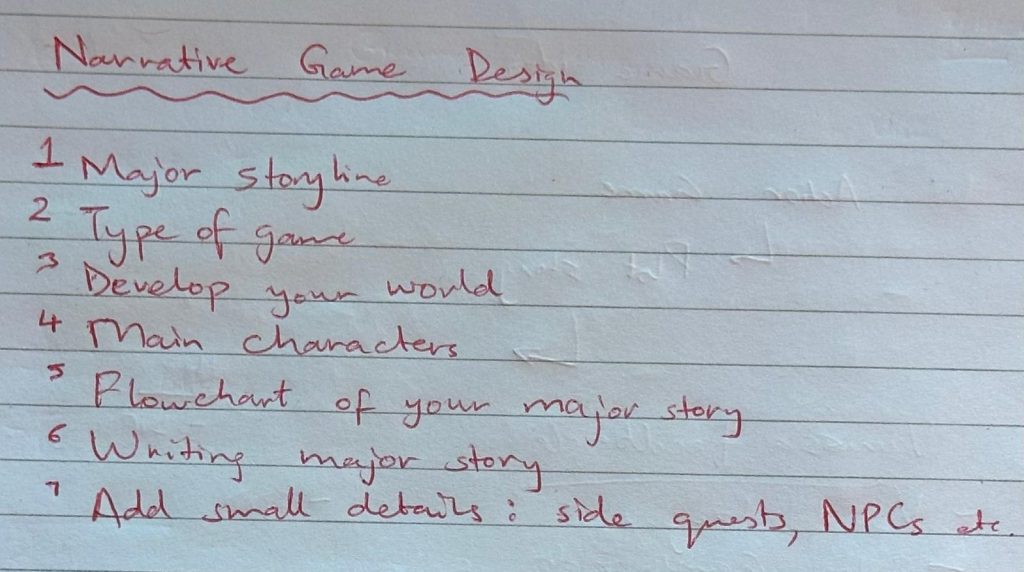 Narrative Game Design
1 Major storyline
2 Type of game
3 Develop your world
4 Main characters
5 Flowchart of your major story
6 Writing major story
7 Add small details : side quests, NPCs etc.